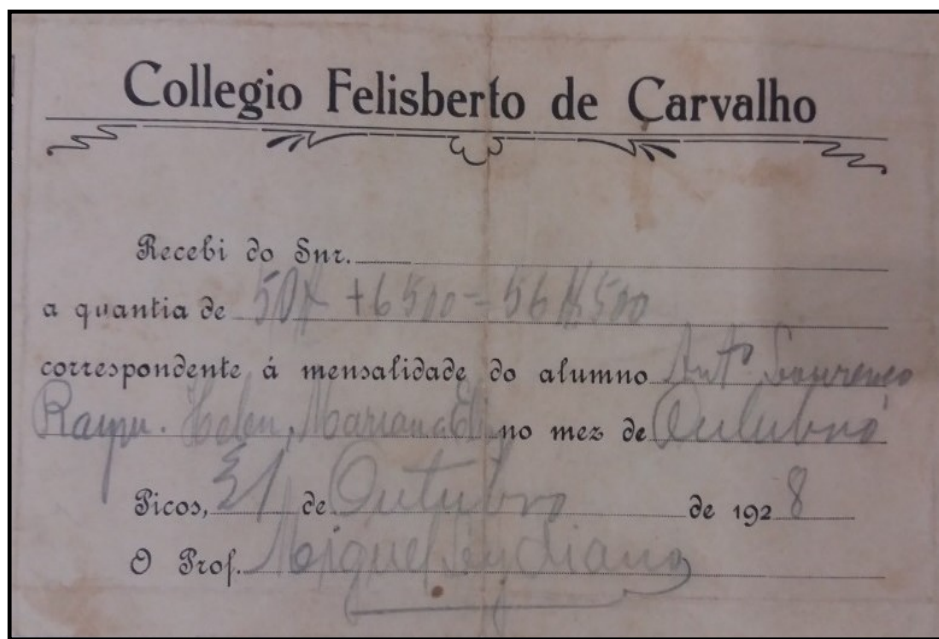 Collegio Felisberto de Carvalho
Recebi do Snr.
a quantia de 50$ + 6500 = 56$500
correspondente á mensalidade do alumno Antº Lourenço
Raym. Helen, Mariana no mez de Outubro
Picos, 31 de Outubro de 1928
O Prof. Miguel Lydiano